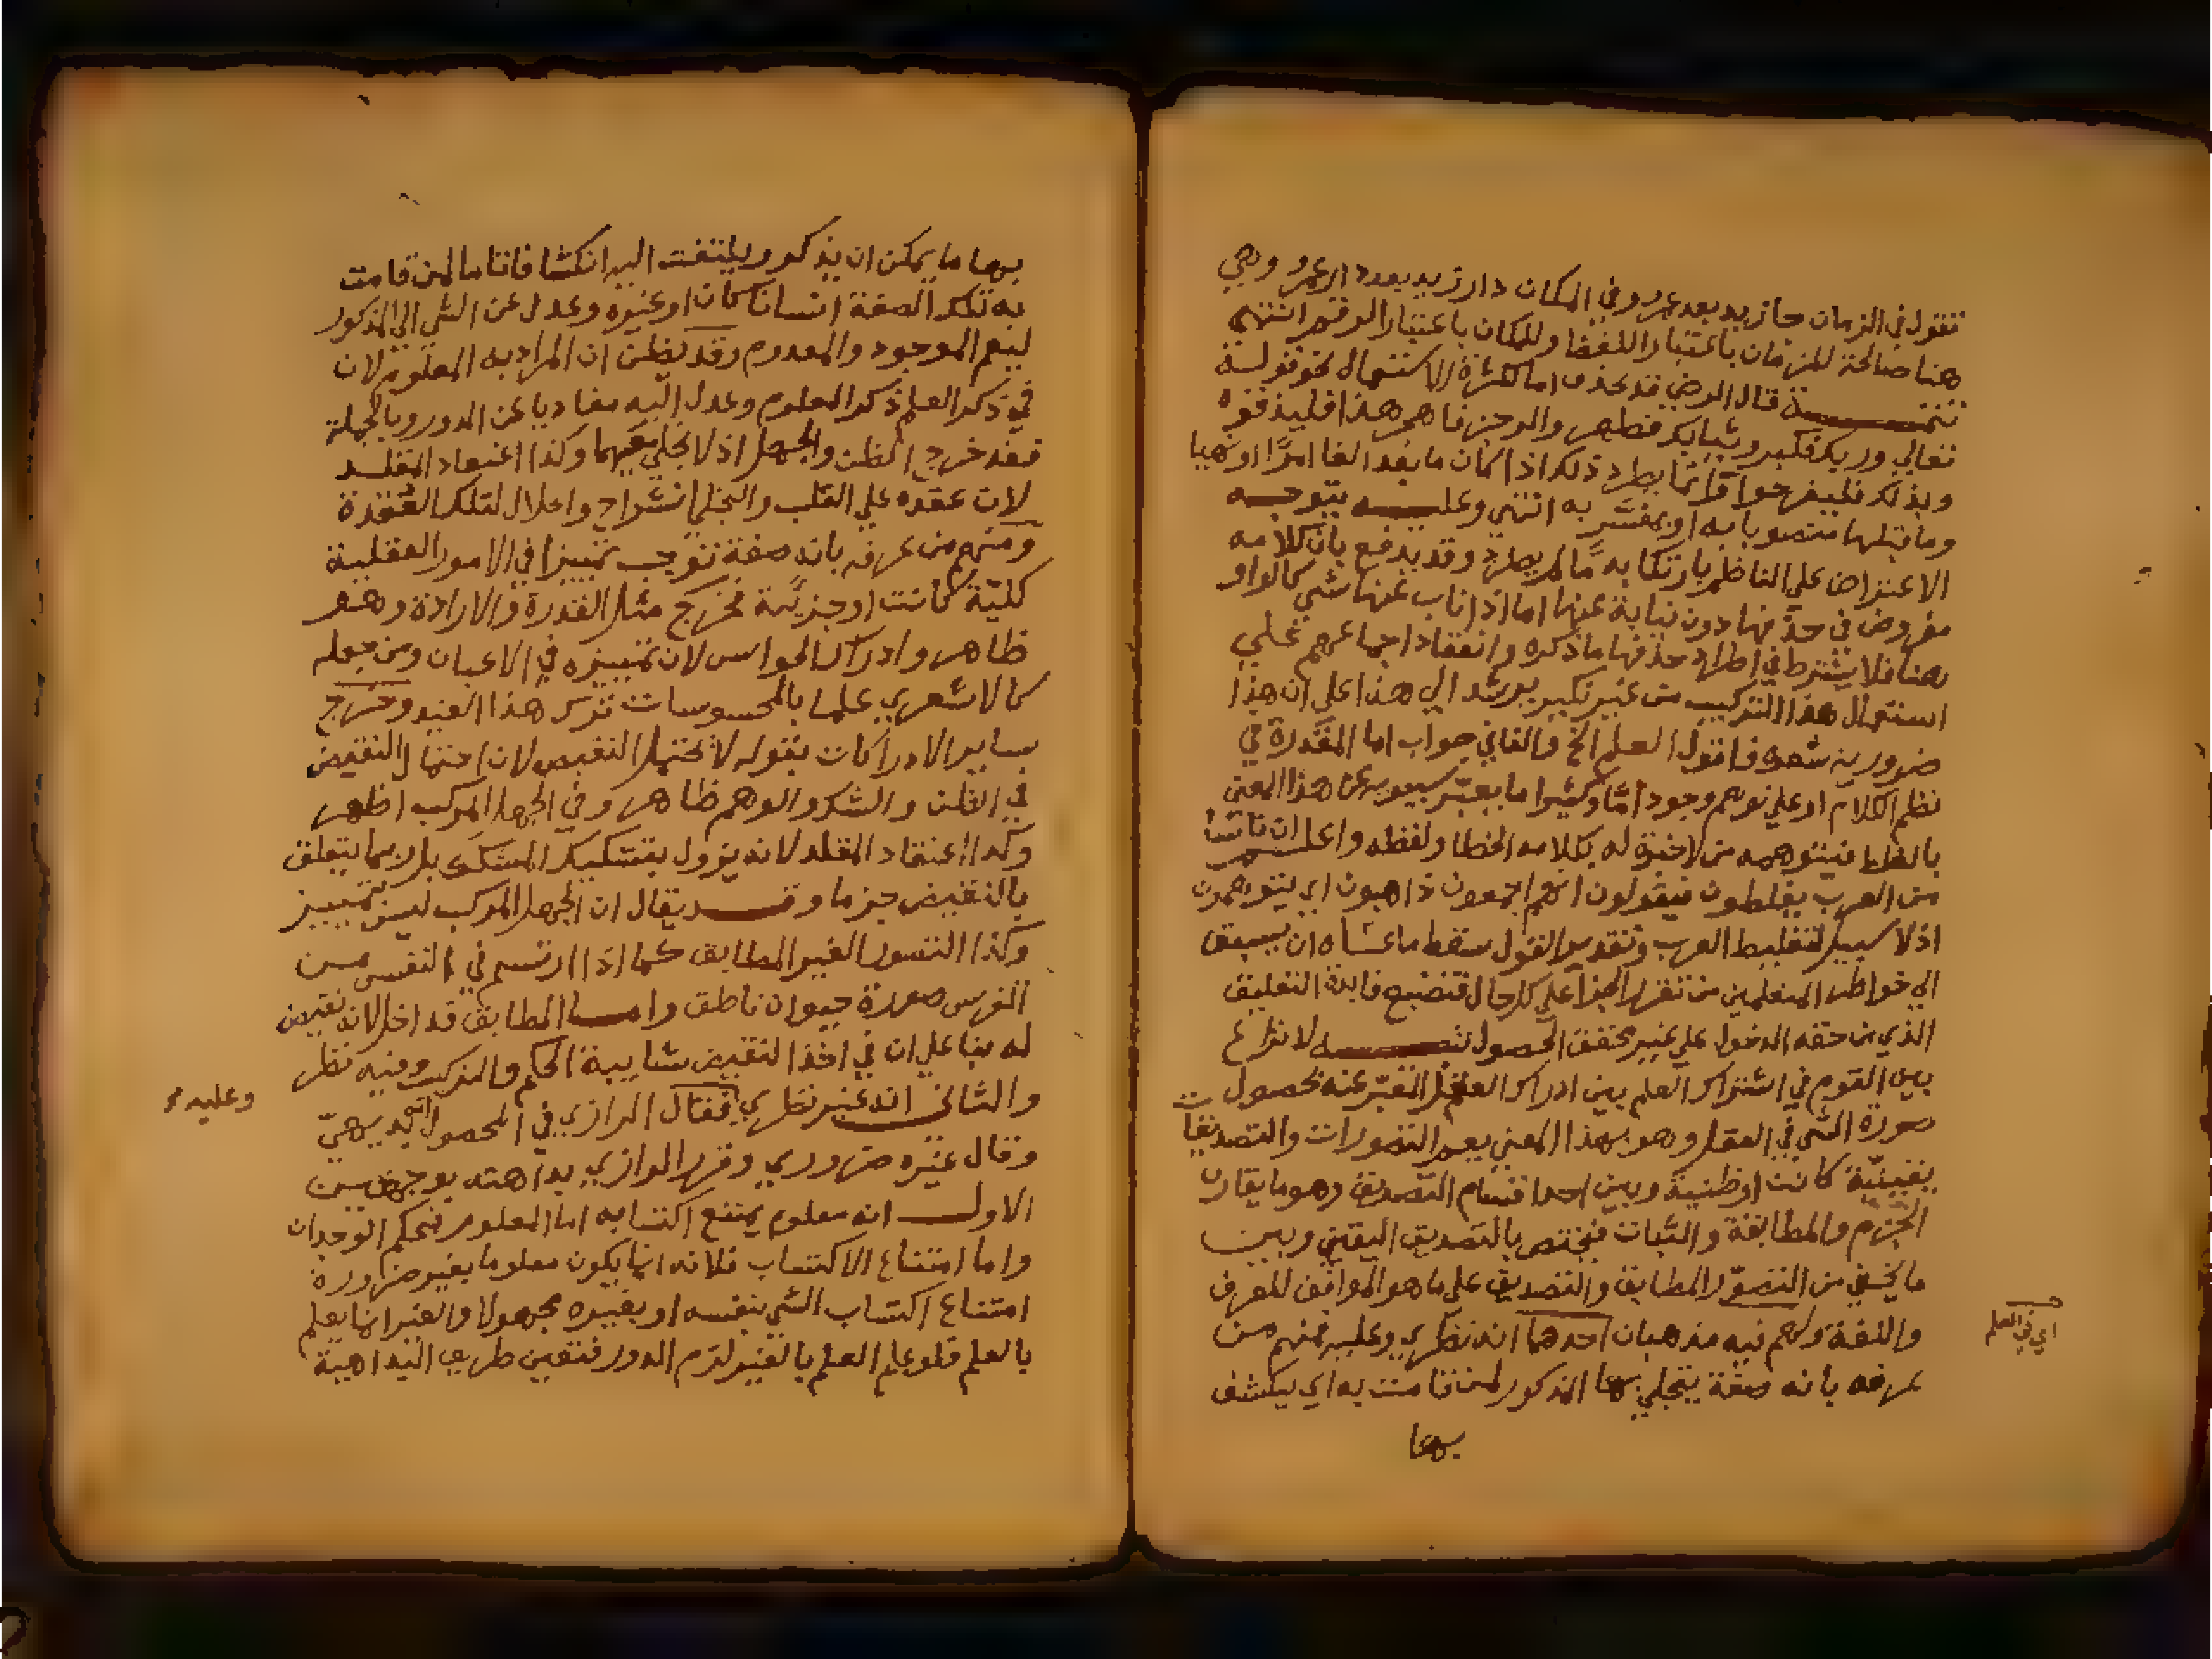 تقول في الزمان جا زيد بعد عمرو وفي المكان دار زيد بعد دار عمرو وهي
هنا صالحة للزمان باعتبار اللفظ وللمكان باعتبار الرقم انتهي
تتمة قال الرضي قد تحذف اما لكثرة الاستعمال نحو قوله
تعالي وربك فكبر وثيابك فطهر والرجز فاهجر هذا فليذوقوه
وبذلك فليفرحوا وانما يطرد ذلك اذا كان ما بعد الفا امرا او نهيا
وما قبلها منصوبا به او بمفسر به انتهي وعليه يتوجه
الاعتراض علي الناظم بارتكابه ما لم يطرد وقد يدفع بان كلامه
مفروض في حذفها دون نيابة عنها اما اذا ناب عنها شي كالواو
هنا فلا يشترط في اطراد حذفها ما ذكره وانعقاد اجماعهم علي
استعمال هذا التركيب من غير نكير يرشد الي هذا علي ان هذا
ضرورية شعر فاقول العلم الخ والفا في جواب اما المقدرة في
نظم الكلام او علي توهم وجود اما وكثيرا ما يعبر سيبويه عن هذا المعني
بالغلط فيتوهمه من لا خبرة له بكلامه الخطا ولفظه واعلم ان ناسا
من العرب يغلطون فيقولون انهم اجمعون ذاهبون اي يتوهمون
اذ لا سبيل لتغليط العرب وتقدير القول سقط ما عساه ان يسبق
الي خواطر المتعلمين من تقرر الجزا علي كل حال فتضيع فايدة التعليق
الذي من حقه الدخول علي غير محقق الحصول تنبيه لا نزاع
بين القوم في اشتراك العلم بين ادراك العقل المعبر عنه بحصول
صورة الشي في العقل وهو بهذا المعني يعم التصورات والتصديقات
يقينية كانت او ظنية وبين احد اقسام التصديق وهو ما يقارن
الجزم والمطابقة والثبات فيختص بالتصديق اليقيني وبين
ما يخفي من التصور المطابق والتصديق علي ما هو الموافق للعرف
واللغة ولهم فيه مذهبان احدهما انه نظري وعليه فمنهم من
عرفه بانه صفة يتجلي بها المذكور لمن قامت به اي ينكشف
بها
اي في العلم
بها ما يمكن ان يذكر ويلتفت اليه انكشافا تاما لمن قامت
به تلك الصفة انسانا كان او غيره وعدل عن الشي الي المذكور
ليعم الموجود والمعدوم وقد يظن ان المراد به المعلوم لان
في ذكر العلم ذكر المعلوم وعدل اليه تفاديا عن الدور وبالجملة
فقد خرج الظن والجهل اذ لا تجلي فيهما وكذا اعتقاد المقلد
لانه عقده علي القلب والتجلي انشراح وانحلال لتلك العقدة
ومنهم من عرفه بانه صفة توجب تمييزا في الامور العقلية
كلية كانت او جزئية فخرج مثل القدرة والارادة وهو
ظاهر وادراك الحواس لان تمييزه في الاعيان ومن جعله
كالاشعري علما بالمحسوسات ترك هذا القيد وخرج
ساير الادراكات بقوله لا يحتمل النقيض لان احتمال النقيض
في الظن والشك والوهم ظاهر وفي الجهل المركب اظهر
وكذا اعتقاد المقلد لانه يزول بتشكيك المشكك بل ربما يتعلق
بالنقيض جزما وقد يقال ان الجهل المركب ليس بتمييز
وكذا التصور الغير المطابق كما اذا ارتسم في النفس من
الفرس صورة حيوان ناطق واما المطابق قد اخل لانه نقيض
له بنا علي ان في اخذ النقيض شايبة الحكم والتركيب وفيه نظر
والثاني انه غير نظري فقال الرازي في المحصول انه بديهي
وقال غيره ضروري وقرر الرازي بداهته بوجهين
الاول انه معلوم يمتنع اكتسابه اما المعلوم فبحكم الوجدان
واما امتناع الاكتساب فلانه انما يكون معلوما بغيره ضرورة
امتناع اكتساب الشي بنفسه او بغيره مجهولا والغير انما يعلم
بالعلم فلو علم العلم بالغير لزم الدور فتعين طريق البداهية
وعليه